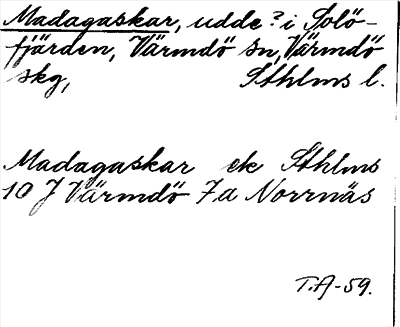 Madagaskar, udde? i Solö-
fjärden, Värmdö sn, Värmdö
skg, Sthlms l.
Madagaskar ek Sthlms
10 J Värmdö 7a Norrnäs
T.A-59.